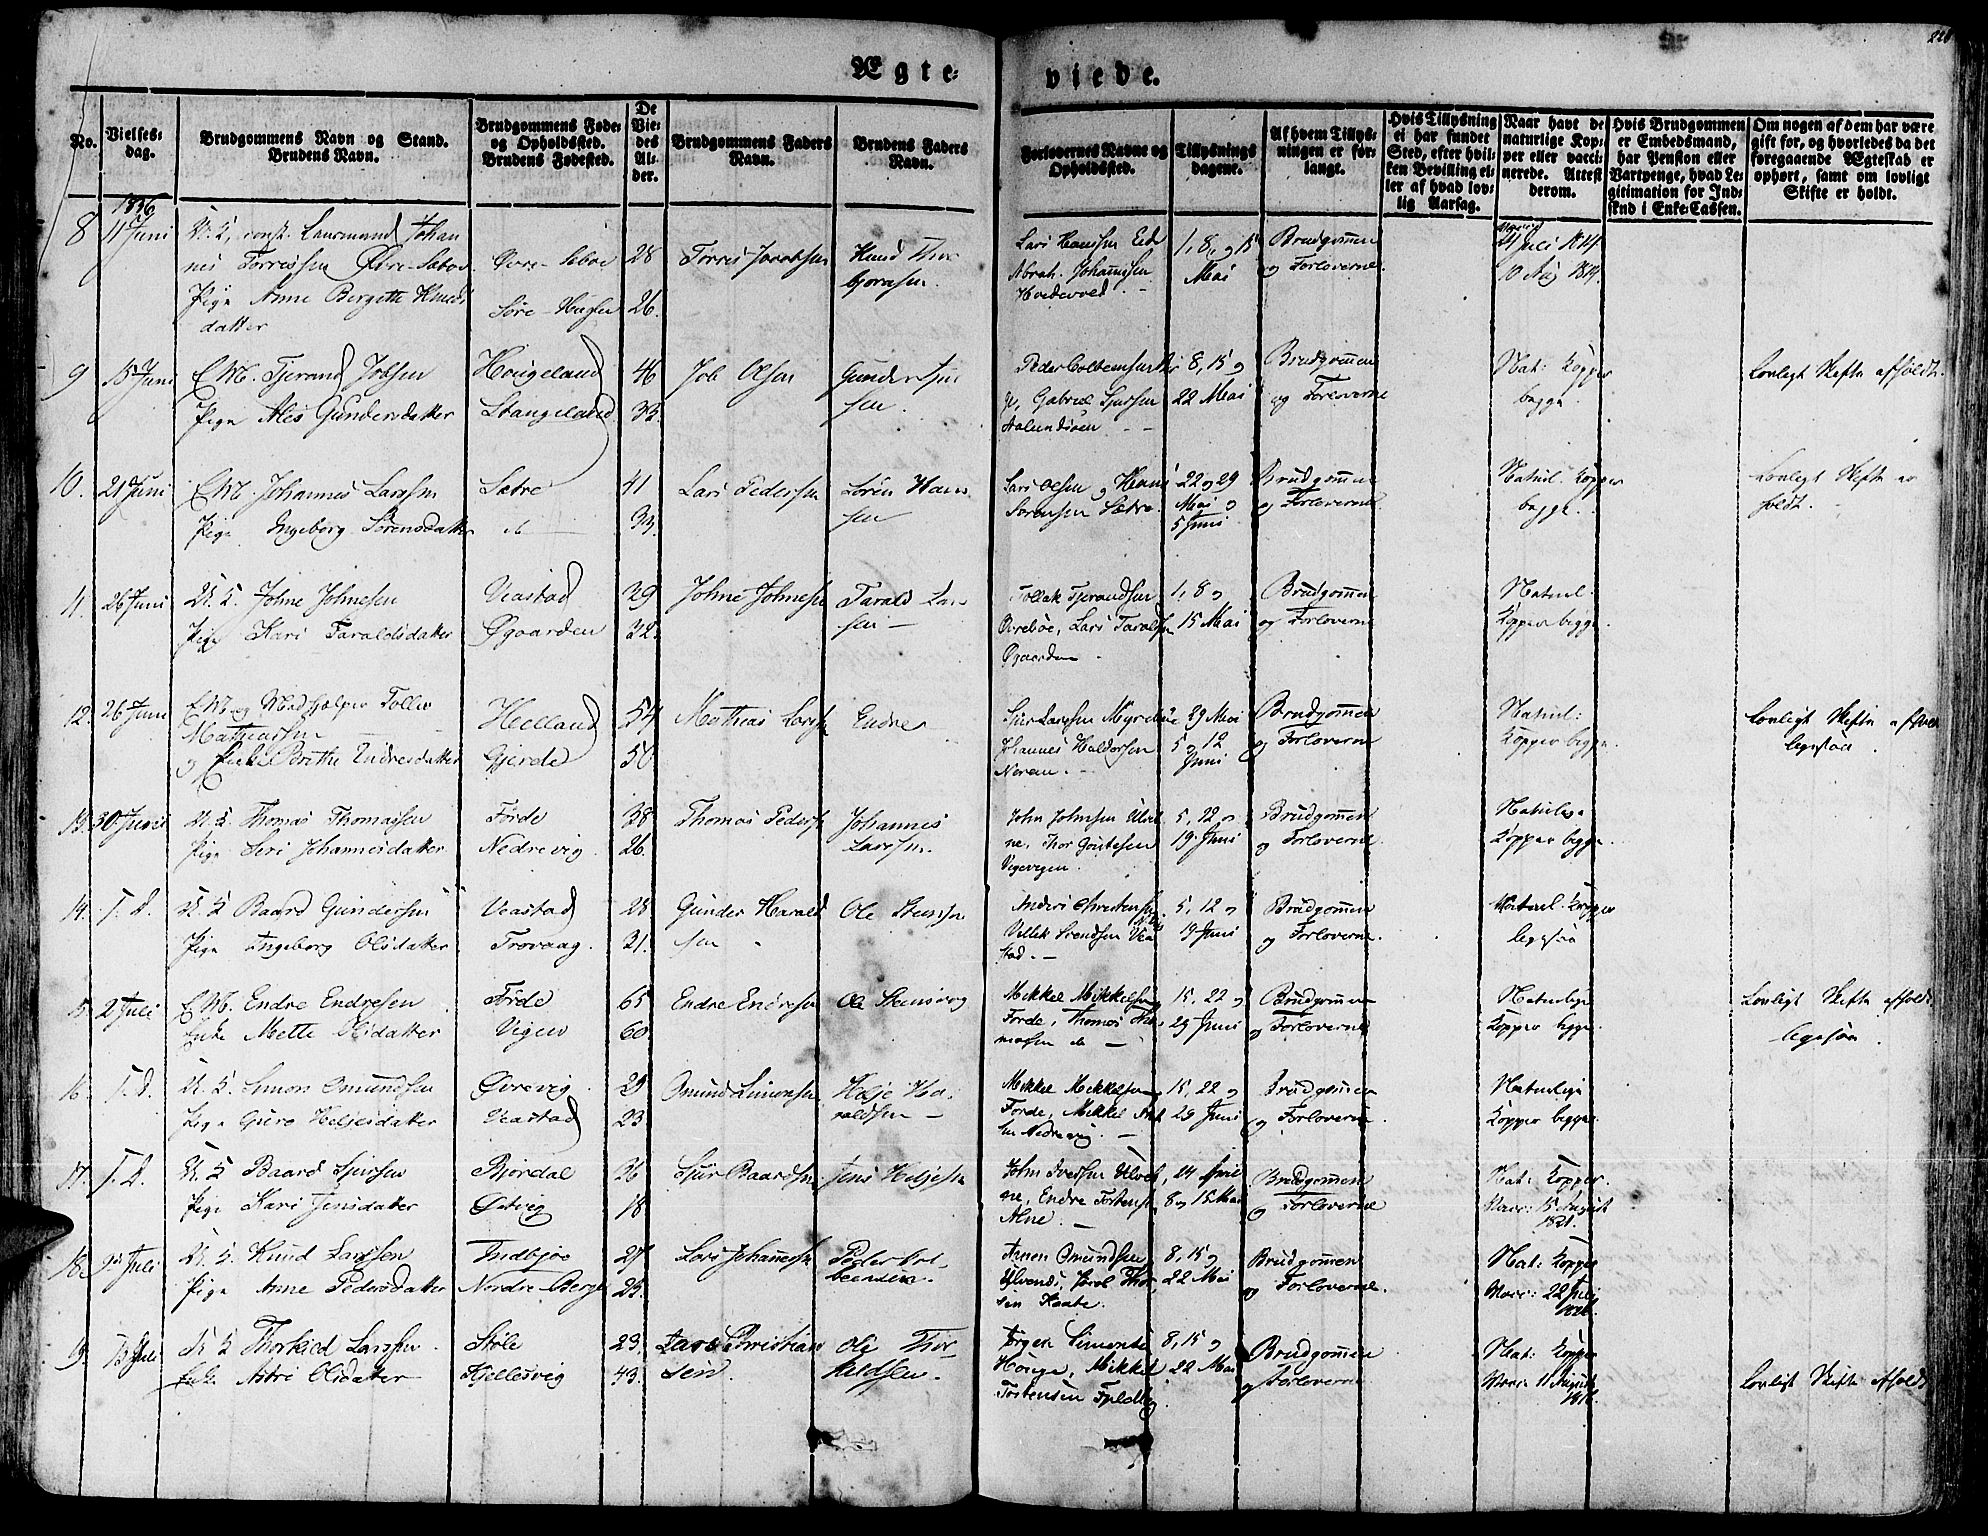 Ægte-
viede.
226
No.
Vielses-
dag.
Brudgommens Navn og Stand.
Brudens Navn.
Brudgommens Føde-
og Opholdssted.
Brudens Fødested.
De
Vie-
des
Al-
der.
Brudgommens Faders
Navn.
Brudens Faders
Navn.
Forlovernes Navne og
Opholdssted.
Tillysnings
dagene.
Af hvem Tillys-
ningen er for-
langt.
Hvis Tillysning
ei har fundet
Sted, efter hvil-
ken Bevilling el-
ler af hvad lov-
lig Aarsag.
Naar havt de
naturlige Kop-
per eller vacci-
nerede. Attest
derom.
Hvis Brudgommen
er Embedsmand,
har Pension eller
Vartpenge, hvad Le-
gitimation for Ind-
skud i Enke-Cassen.
Om nogen af dem har være
gift før, og hvorledes da det
foregaaende Ægteskab er
ophørt, samt om lovligt
Skifte er holdt.
1836
8 11 Juni
U. K. const. Lensmand Johan
nes Torressen Øvre-Sebøe
Pige Anne Bergitte Knuds
datter
28
26.
Torres Jacobsen
Knud Thor
bjørnsen.
Lars Hansen Eide
Abrah. Johannesen
1, 8, og 15
Mai
Brudgommen
og Forloverne.
10 Aug 1814.
9 15 Juni
E.M. Tjerand Jobsen
Pige Ales Gundersdatter
Hougeland
Stangeland
46
33.
Job Olsen
Gunder Sjur
sen.
Gabriel Sjursen
8, 15 og
22 Mai
Brudgommen
og Forloverne
Nat: Kopper
begge.
Lovligt Skifte afholdt.
10. 21 Juni
E.M. Johannes Larssen
Pige Ingeborg Sørensdatter
Sætre
do
41
33.
Lars Pedersen
Søren Han
sen
Lars Olsen og Hans
Sørensen Sætre.
22 og 29
Mai og
5 Juni
Brudgommen
og Forloverne.
Naturl. Kopper
begge.
Lovligt Skifte er
holdt.
11. 26 Juni
U. K. Johne Johnesen
Pige Kari Taraldsdatter
Veastad
Øgaarden
29
32.
Johne Johnesen
Tarald Lar
sen
Tollak Tjerandsen
Øvrebøe, Lars Taraldsen
Øgaarden.
1, 8 og
15 Mai
Brudgommen
og Forloverne
Naturl.
Kopper begge.
12. 26 Juni
E.M. og Medhjælper Tollev
Mathiassen
og Enke Brithe Endresdatter
Helland
Gjerde
54
50
Mathias Larssen
Endre
Sjur Larssen Myrebøe
Johannes Haldorsen
29 Mai
5 og 12
Juni
Brudgommen
og Forloverne
Naturl:
Kopper begge.
Lovligt Skifte afholdt
ligesaa.
13. 30 Juni
U. K. Thomas Thomassen
Pige Siri Johannesdatter
Førde
Nedrevig
38
26.
Thomas Peders
Johannes
Larssen.
John Johnsen Ulve
ne, Thor Goutesen
5, 12 og
19 Juni
Brudgommen
og Forloverne.
Naturlige
Kopper begge.
14. T. D.
U. K. Baard Gundersen
Pige Ingeborg Olsdatter
Veastad
Trovaag.
28
31.
Gunder Harald
sen
Ole Stensen
Anders Christensen
Villek Svendsen Vea
stad.
5, 12 og
19 Juni
Brudgommen
og Forloverne.
Naturl. Kopper
ligesaa
15. 2 Juli
E.M. Endre Endresen
Enke Mette Olsdatter
Førde
Vigen
65
60.
Endre Endresen
Mikkel Mikkelsen
Førde, Thomas Tho
massen do
15, 22 og
29 Juni
Brudgommen
og Forloverne
Naturlige
Kopper begge.
Lovligt Skifte afholdt
ligesaa.
16. T. D.
U. K. Simon Omundsen
Pige Guro Heljesdatter
Øvrevig.
Veastad
29
23
Omund Simonsen
Helje Ha-
raldsen
Mikkel Mikkelsen
Førde, Mikkel
sen Nedrevig.
15, 22 og
29 Juni
Brudgommen
og Forloverne
Naturlige
Kopper begge.
17. T. D.
U. K. Baard Sjursen
Pige Kari Jensdatter
Bjørdal
Østvig
26
18
Sjur Baardsen
Jens Heljesen
ne, Endre Torstens
Alne.
24 April
8 og 15 Mai
Brudgommen
og Forloverne
Nat: Kopper.
Vacc: 15 August
1821.
18. 9de Juli
U. K. Knud Larssen
Pige Anne Pedersdatter
Indbjoe
Nordre Berge
27
25.
Lars Johannesen
Peder Col-
beensen.
Arnen Omundsen
8, 15 og
22 Mai
Brudgommen
og Forloverne.
Nat: Kopper
Vacc: 22 Juli
19. 13 Juli
U. K. Thorkild Larssen
Enke Astri Olsdatter
Støle
Kjellesvig
23.
43.
Lars Christian
sen.
Ole Thor-
kildsen.
Jørgen Simonsen
Houge, Mikkel
Torstensen
8, 15 og
22 Mai
Brudgommen
og Forloverne.
Nat: Kopper
Vacc: 11 August
Lovligt Skifte afholdt